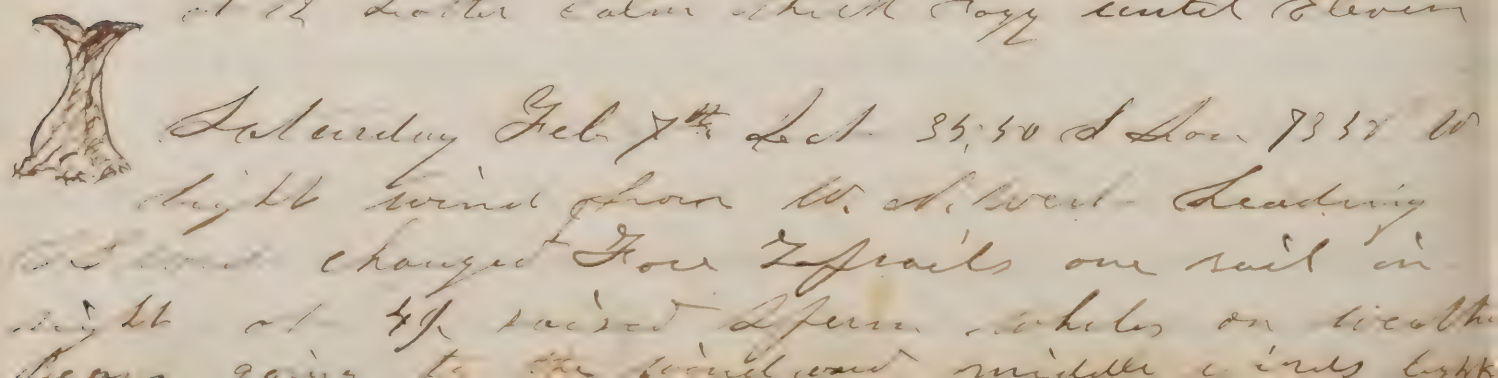 calm thick fogg until Eleven
Saturday Feb 7th Lat 35,50 S Lon 73 52 W
light wind from W. N. West Heading
changed Fore Topsails one sail in
sight at 4 raised Sperm whales on weather
going to the windward middle winds light